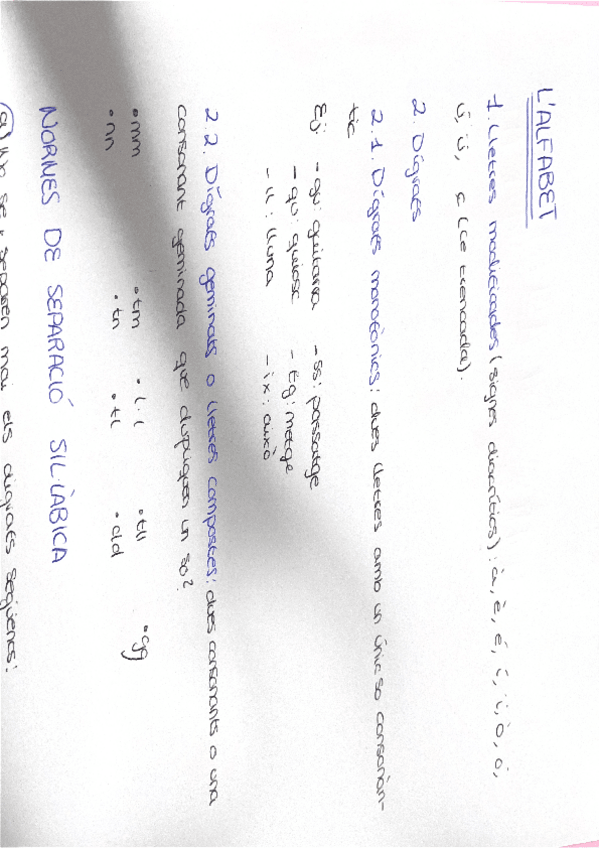 L'ALFABET
1. Lletres modificades (signes diacrítics): à, è, é, í, ï, ò, ó,
ú, ü, ç (ce trencada).
2. Dígrafs
2.1. Dígrafs monofònics: dues lletres amb un únic so consonàn-
tic
Ej: - gu: guitarra - ss: passatge
- qu: quiosc - tg: metge
- ll: lluna - ix: això
2.2. Dígrafs geminats o lletres compostes: dues consonants o una
consonant geminada que dupliquen un so?
• mm • tm • l·l • tll • gg
• nn • tn • tl • dd
NORMES DE SEPARACIÓ SIL·LÀBICA
a) No se separen mai els dígrafs següents: